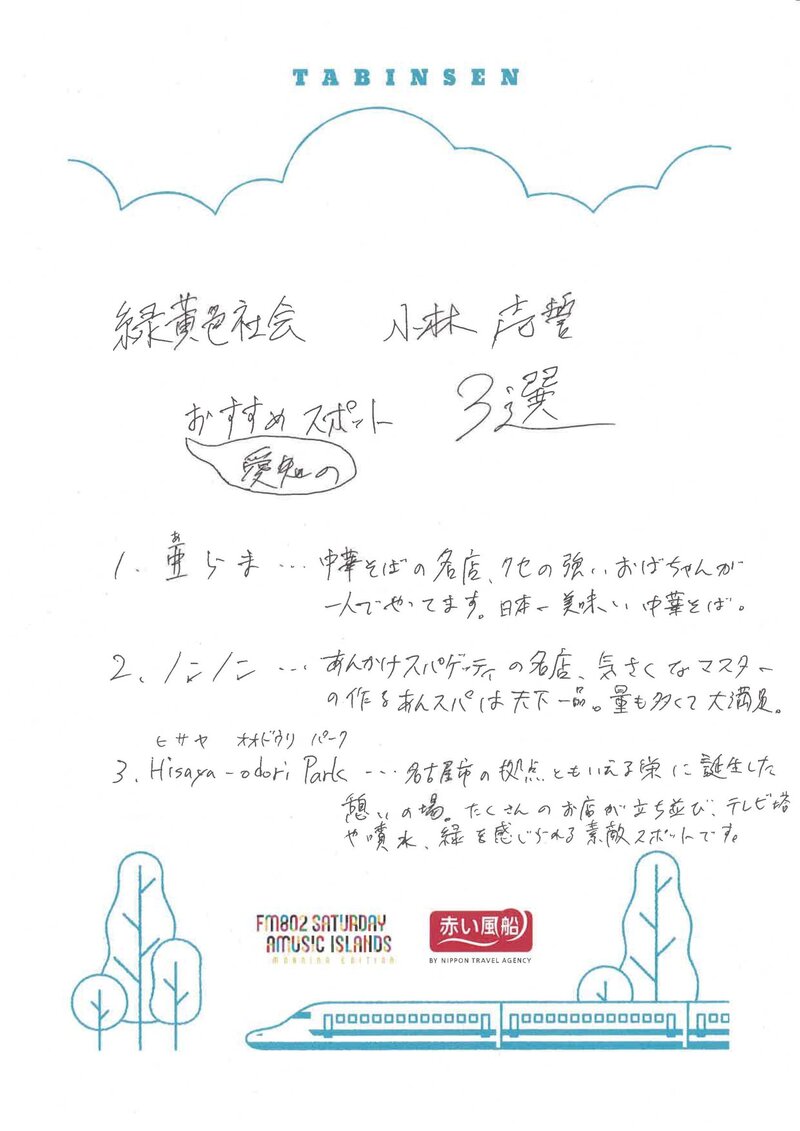 TABINSEN
緑黄色社会 小林壱誓
おすすめスポット 3選
愛知の
あ
1. 亜らま…中華そばの名店、クセの強いおばちゃんが
一人でやってます。日本一美味い中華そば。
2. ノンノン…あんかけスパゲッティの名店、気さくなマスター
の作るあんスパは天下一品。量も多くて大満足。
ヒサヤ オオドウリ パーク
3. Hisaya-odori Park…名古屋市の拠点ともいえる栄に誕生した
憩いの場。たくさんのお店が立ち並び、テレビ塔
や噴水、緑を感じられる素敵スポットです。
FM802 SATURDAY
AMUSIC ISLANDS
MORNING EDITION
赤い風船
BY NIPPON TRAVEL AGENCY